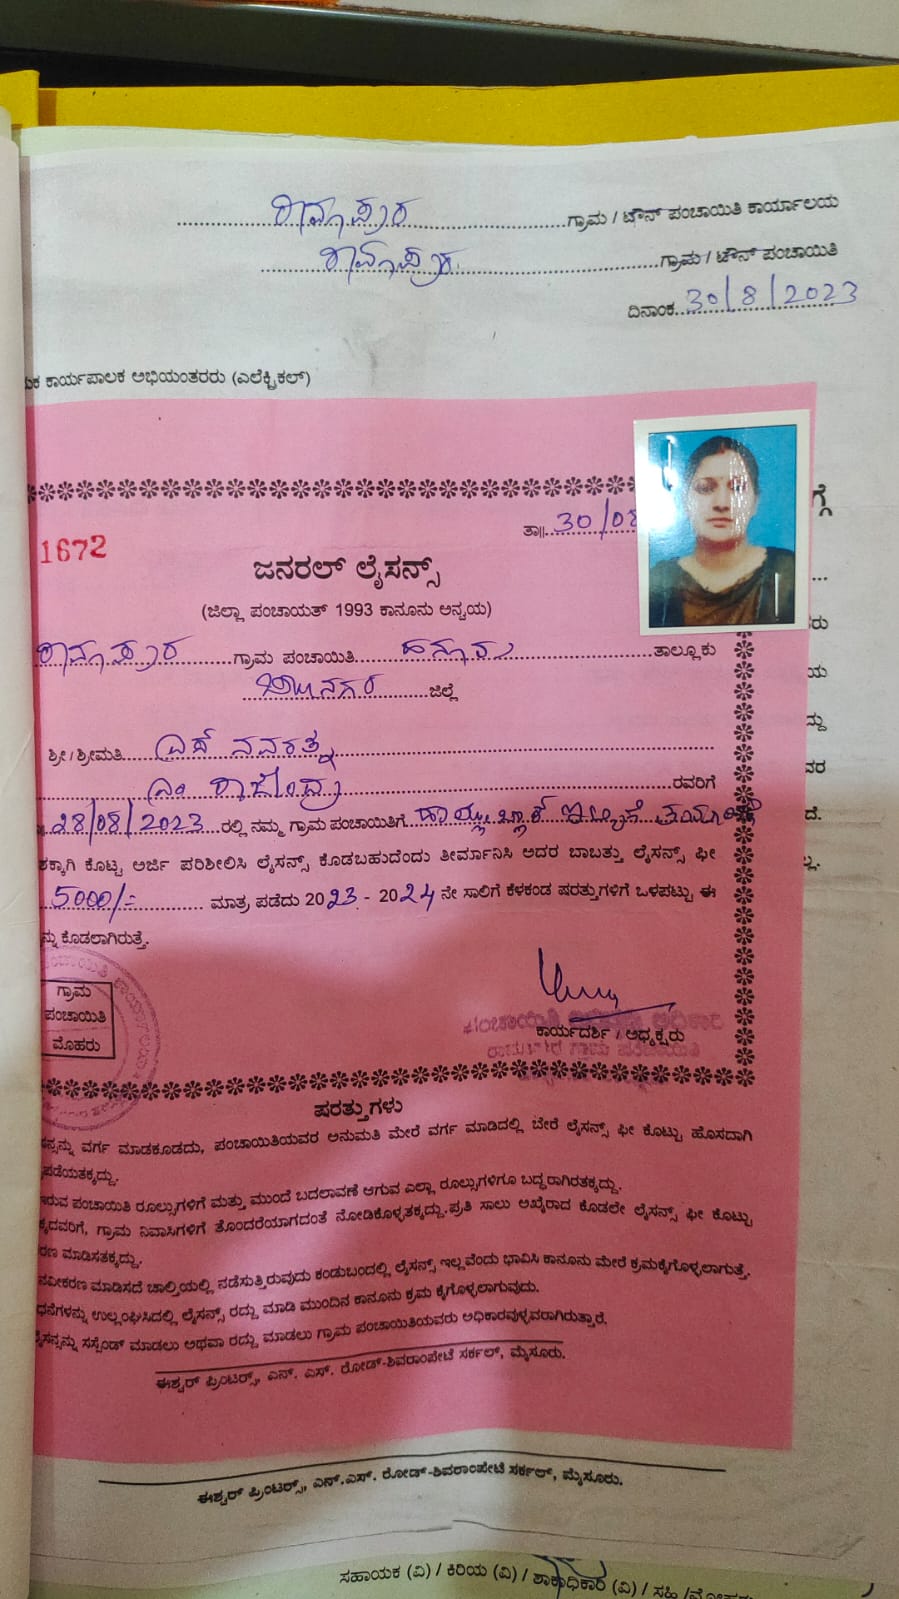 ರಾಮಾಪುರ ಗ್ರಾಮ / ಟೌನ್ ಪಂಚಾಯಿತಿ ಕಾರ್ಯಾಲಯ
ರಾಮಾಪುರ ಗ್ರಾಮ / ಟೌನ್ ಪಂಚಾಯಿತಿ
ದಿನಾಂಕ 30/8/2023
ಕಾರ್ಯಪಾಲಕ ಅಭಿಯಂತರರು (ಎಲೆಕ್ಟ್ರಿಕಲ್)
ಗ್ಗೆ
1672
ತಾ॥ 30/08
ಜನರಲ್ ಲೈಸನ್ಸ್
(ಜಿಲ್ಲಾ ಪಂಚಾಯತ್ 1993 ಕಾನೂನು ಅನ್ವಯ)
ರಾಮಾಪುರ ಗ್ರಾಮ ಪಂಚಾಯಿತಿ ಹನೂರು ತಾಲ್ಲೂಕು
ಜಿಲ್ಲೆ
ಶ್ರೀ / ಶ್ರೀಮತಿ ಎಸ್ ನವರತ್ನ
ಎಂ ರಾಜೇಂದ್ರ ರವರಿಗೆ
28/08/2023 ರಲ್ಲಿ ನಮ್ಮ ಗ್ರಾಮ ಪಂಚಾಯಿತಿಗೆ
ಕ್ಕಾಗಿ ಕೊಟ್ಟ ಅರ್ಜಿ ಪರಿಶೀಲಿಸಿ ಲೈಸನ್ಸ್ ಕೊಡಬಹುದೆಂದು ತೀರ್ಮಾನಿಸಿ ಅದರ ಬಾಬತ್ತು ಲೈಸನ್ಸ್ ಫೀ
5000/- ಮಾತ್ರ ಪಡೆದು 2023 - 2024 ನೇ ಸಾಲಿಗೆ ಕೆಳಕಂಡ ಷರತ್ತುಗಳಿಗೆ ಒಳಪಟ್ಟು ಈ
ನ್ನು ಕೊಡಲಾಗಿರುತ್ತೆ.
ಗ್ರಾಮ
ಪಂಚಾಯಿತಿ
ಮೊಹರು
ಕಾರ್ಯದರ್ಶಿ / ಅಧ್ಯಕ್ಷರು
ಷರತ್ತುಗಳು
ನ್ಸನ್ನು ವರ್ಗ ಮಾಡಕೂಡದು, ಪಂಚಾಯಿತಿಯವರ ಅನುಮತಿ ಮೇರೆ ವರ್ಗ ಮಾಡಿದಲ್ಲಿ ಬೇರೆ ಲೈಸನ್ಸ್ ಫೀ ಕೊಟ್ಟು ಹೊಸದಾಗಿ
ಪಡೆಯತಕ್ಕದ್ದು.
ಇರುವ ಪಂಚಾಯಿತಿ ರೂಲ್ಸುಗಳಿಗೆ ಮತ್ತು ಮುಂದೆ ಬದಲಾವಣೆ ಆಗುವ ಎಲ್ಲಾ ರೂಲ್ಸುಗಳಿಗೂ ಬದ್ಧರಾಗಿರತಕ್ಕದ್ದು.
ಕ್ಕದವರಿಗೆ, ಗ್ರಾಮ ನಿವಾಸಿಗಳಿಗೆ ತೊಂದರೆಯಾಗದಂತೆ ನೋಡಿಕೊಳ್ಳತಕ್ಕದ್ದು. ಪ್ರತಿ ಸಾಲು ಅಖೈರಾದ ಕೊಡಲೇ ಲೈಸನ್ಸ್ ಫೀ ಕೊಟ್ಟು
ರಣ ಮಾಡಿಸತಕ್ಕದ್ದು.
ನವೀಕರಣ ಮಾಡಿಸದೆ ಚಾಲ್ತಿಯಲ್ಲಿ ನಡೆಸುತ್ತಿರುವುದು ಕಂಡುಬಂದಲ್ಲಿ ಲೈಸನ್ಸ್ ಇಲ್ಲವೆಂದು ಭಾವಿಸಿ ಕಾನೂನು ಮೇರೆ ಕ್ರಮಕೈಗೊಳ್ಳಲಾಗುತ್ತೆ.
ಧನೆಗಳನ್ನು ಉಲ್ಲಂಘಿಸಿದಲ್ಲಿ ಲೈಸನ್ಸ್ ರದ್ದು ಮಾಡಿ ಮುಂದಿನ ಕಾನೂನು ಕ್ರಮ ಕೈಗೊಳ್ಳಲಾಗುವುದು.
ಲೈಸನ್ಸನ್ನು ಸಸ್ಪೆಂಡ್ ಮಾಡಲು ಅಥವಾ ರದ್ದು ಮಾಡಲು ಗ್ರಾಮ ಪಂಚಾಯಿತಿಯವರು ಅಧಿಕಾರವುಳ್ಳವರಾಗಿರುತ್ತಾರೆ.
ಈಶ್ವರ್ ಪ್ರಿಂಟರ್ಸ್, ಎನ್. ಎಸ್. ರೋಡ್-ಶಿವರಾಂಪೇಟೆ ಸರ್ಕಲ್, ಮೈಸೂರು.
ಈಶ್ವರ್ ಪ್ರಿಂಟರ್ಸ್, ಎನ್.ಎಸ್. ರೋಡ್-ಶಿವರಾಂಪೇಟೆ ಸರ್ಕಲ್, ಮೈಸೂರು.
ಸಹಾಯಕ (ವಿ) / ಕಿರಿಯ (ವಿ) / ಶಾಖಾಧಿಕಾರಿ (ವಿ) / ಸಹಿ